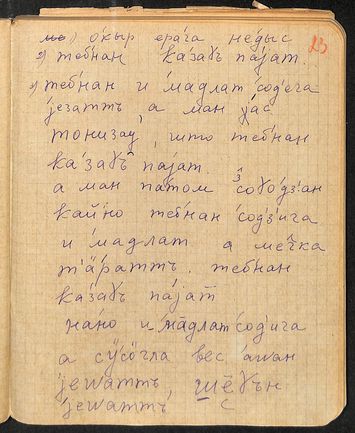 23
о́кыр ера́га не́дыс
тебнан ка́заɣъ паjат.
тебнан и ма́длат со́д'ега
jезаттъ, а ман jа́с
тонизау, што тебнан
ка́заɣъ паjат.
а ман па́том
кайно тебнан со́дз'ига
и ма́длат а ме́чка
т'а́раттъ. тебнан
ка́заɣъ па́jат
на́но и ма́длат со́д'ига
а сӱсӧгла вес ашан
jешаттъ, шё̄ɣън
jешаттъ